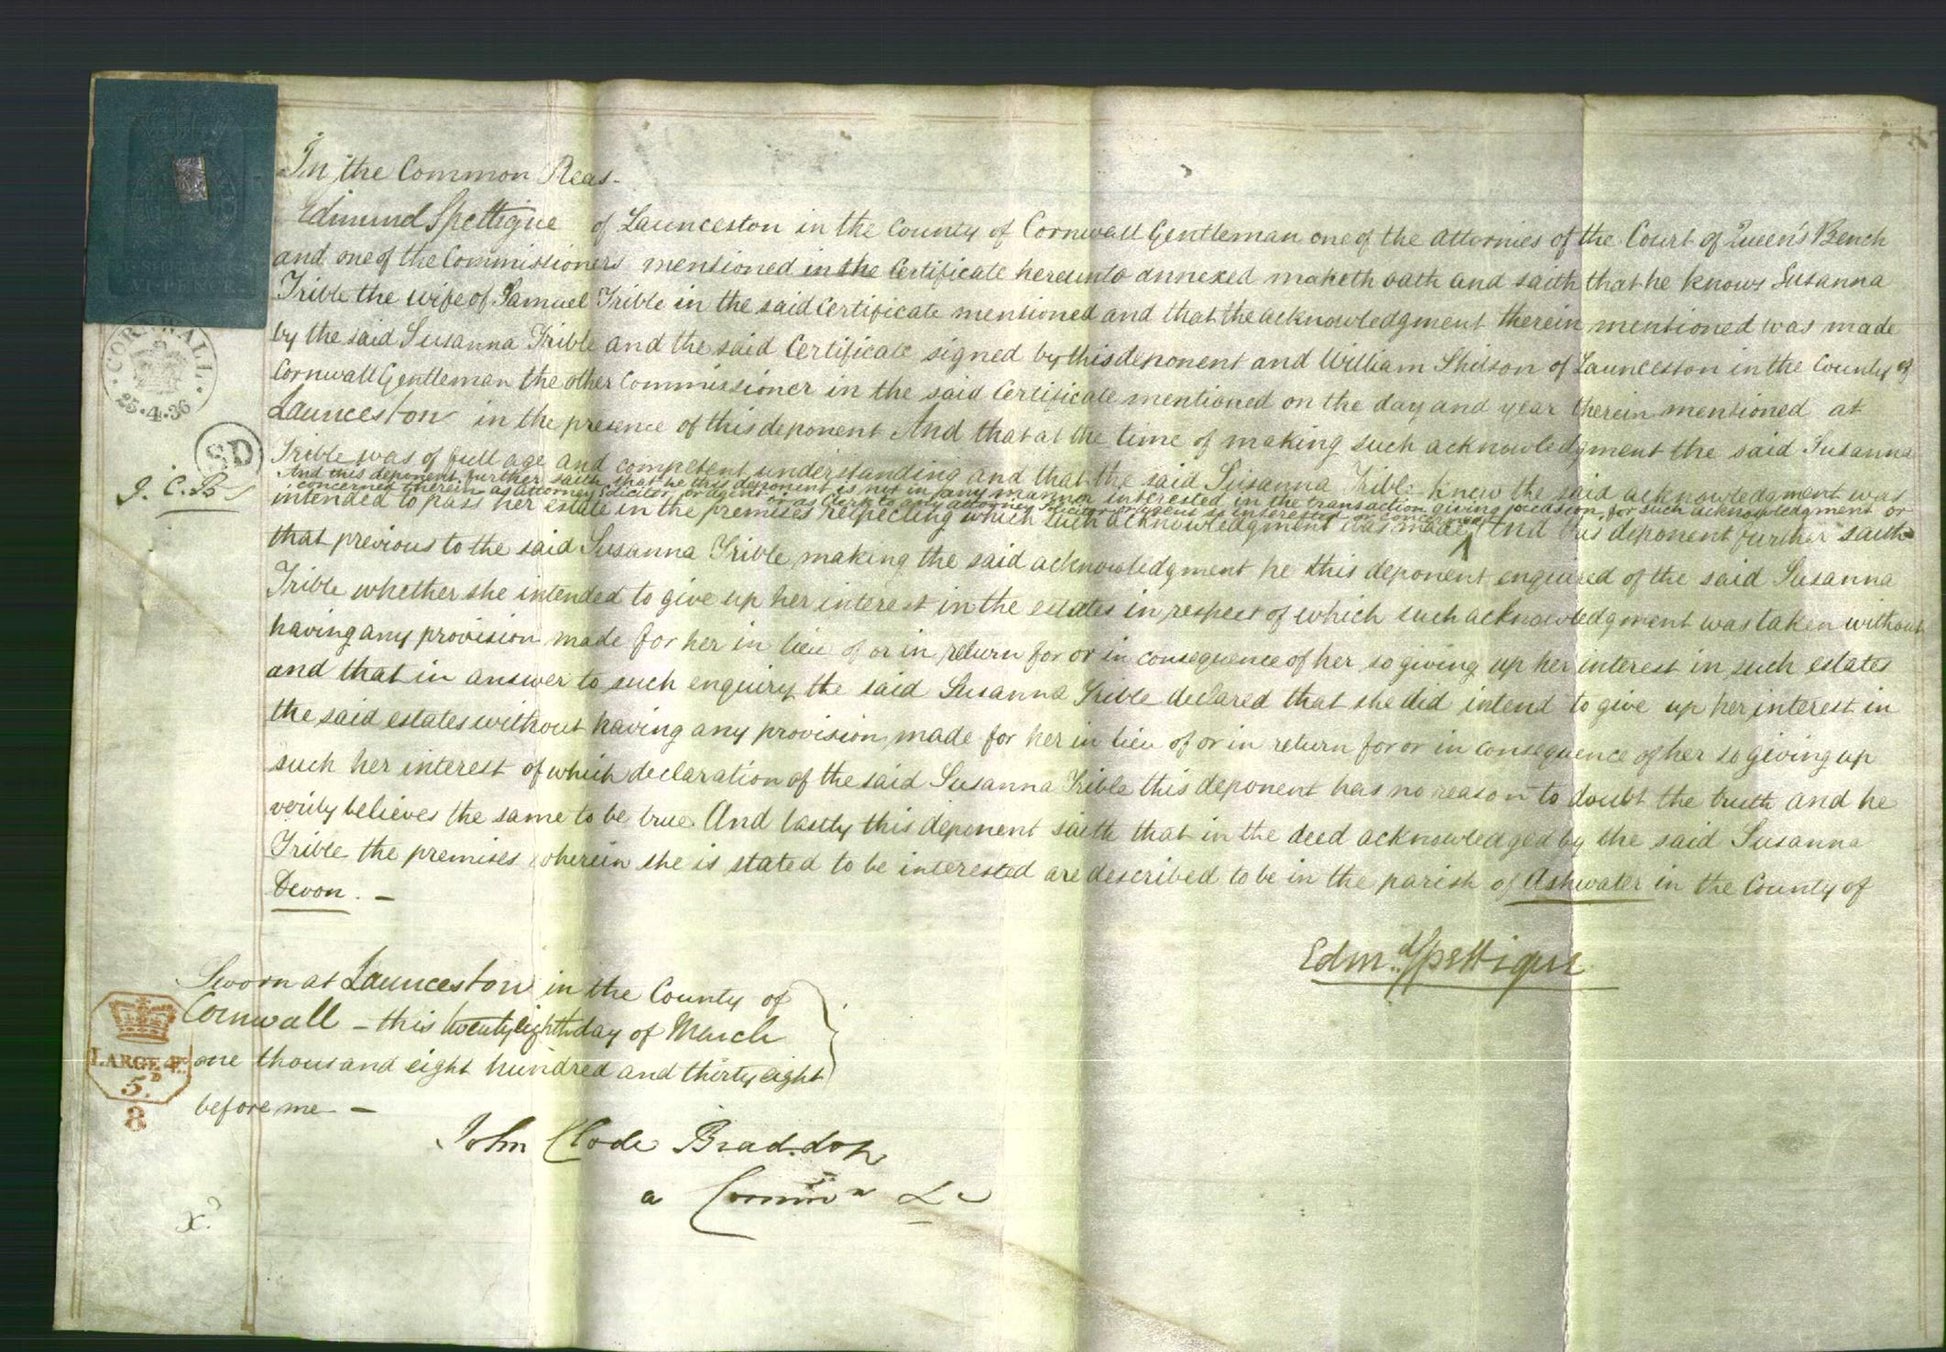 In the Common Pleas-
Edmund Spettigue of Launceston in the County of Cornwall Gentleman one of the Attornies of the Court of Queen's Bench
and one of the Commissioners mentioned in the Certificate hereunto annexed maketh oath and saith that he knows Susanna
Trible the wife of Samuel Trible in the said Certificate mentioned and that the acknowledgment therein mentioned was made
by the said Susanna Trible and the said Certificate signed by this deponent and William Shilson of Launceston in the County of
Cornwall Gentleman the other Commissioner in the said Certificate mentioned on the day and year therein mentioned at
Launceston in the presence of this deponent And that at the time of making such acknowledgment the said Susanna
Trible was of full age and competent understanding and that the said Susanna Trible knew the said acknowledgment was
And this deponent further saith that he this deponent is not in any manner interested in the transaction giving occasion for such acknowledgment or
concerned therein as attorney solicitor or agent or as clerk to any attorney solicitor or agent so interested or concerned
intended to pass her estate in the premises respecting which such acknowledgment was made And this deponent further saith
that previous to the said Susanna Trible making the said acknowledgment he this deponent enquired of the said Susanna
Trible whether she intended to give up her interest in the estates in respect of which such acknowledgment was taken without
having any provision made for her in lieu of or in return for or in consequence of her so giving up her interest in such estates
and that in answer to such enquiry the said Susanna Trible declared that she did intend to give up her interest in
the said estates without having any provision made for her in lieu of or in return for or in consequence of her so giving up
such her interest of which declaration of the said Susanna Trible this deponent has no reason to doubt the truth and he
verily believes the same to be true And lastly this deponent saith that in the deed acknowledged by the said Susanna
Trible the premises wherein she is stated to be interested are described to be in the parish of Ashwater in the County of
Devon. -
Edmd Spettigue
Sworn at Launceston in the County of
Cornwall - this twenty eighth day of March
one thousand eight hundred and thirty eight
before me -
John Clode Braddon
a Commr &c
VI PENCE
CORNWALL
25.4.36
SD
J. C. B
LARGE
5D
8